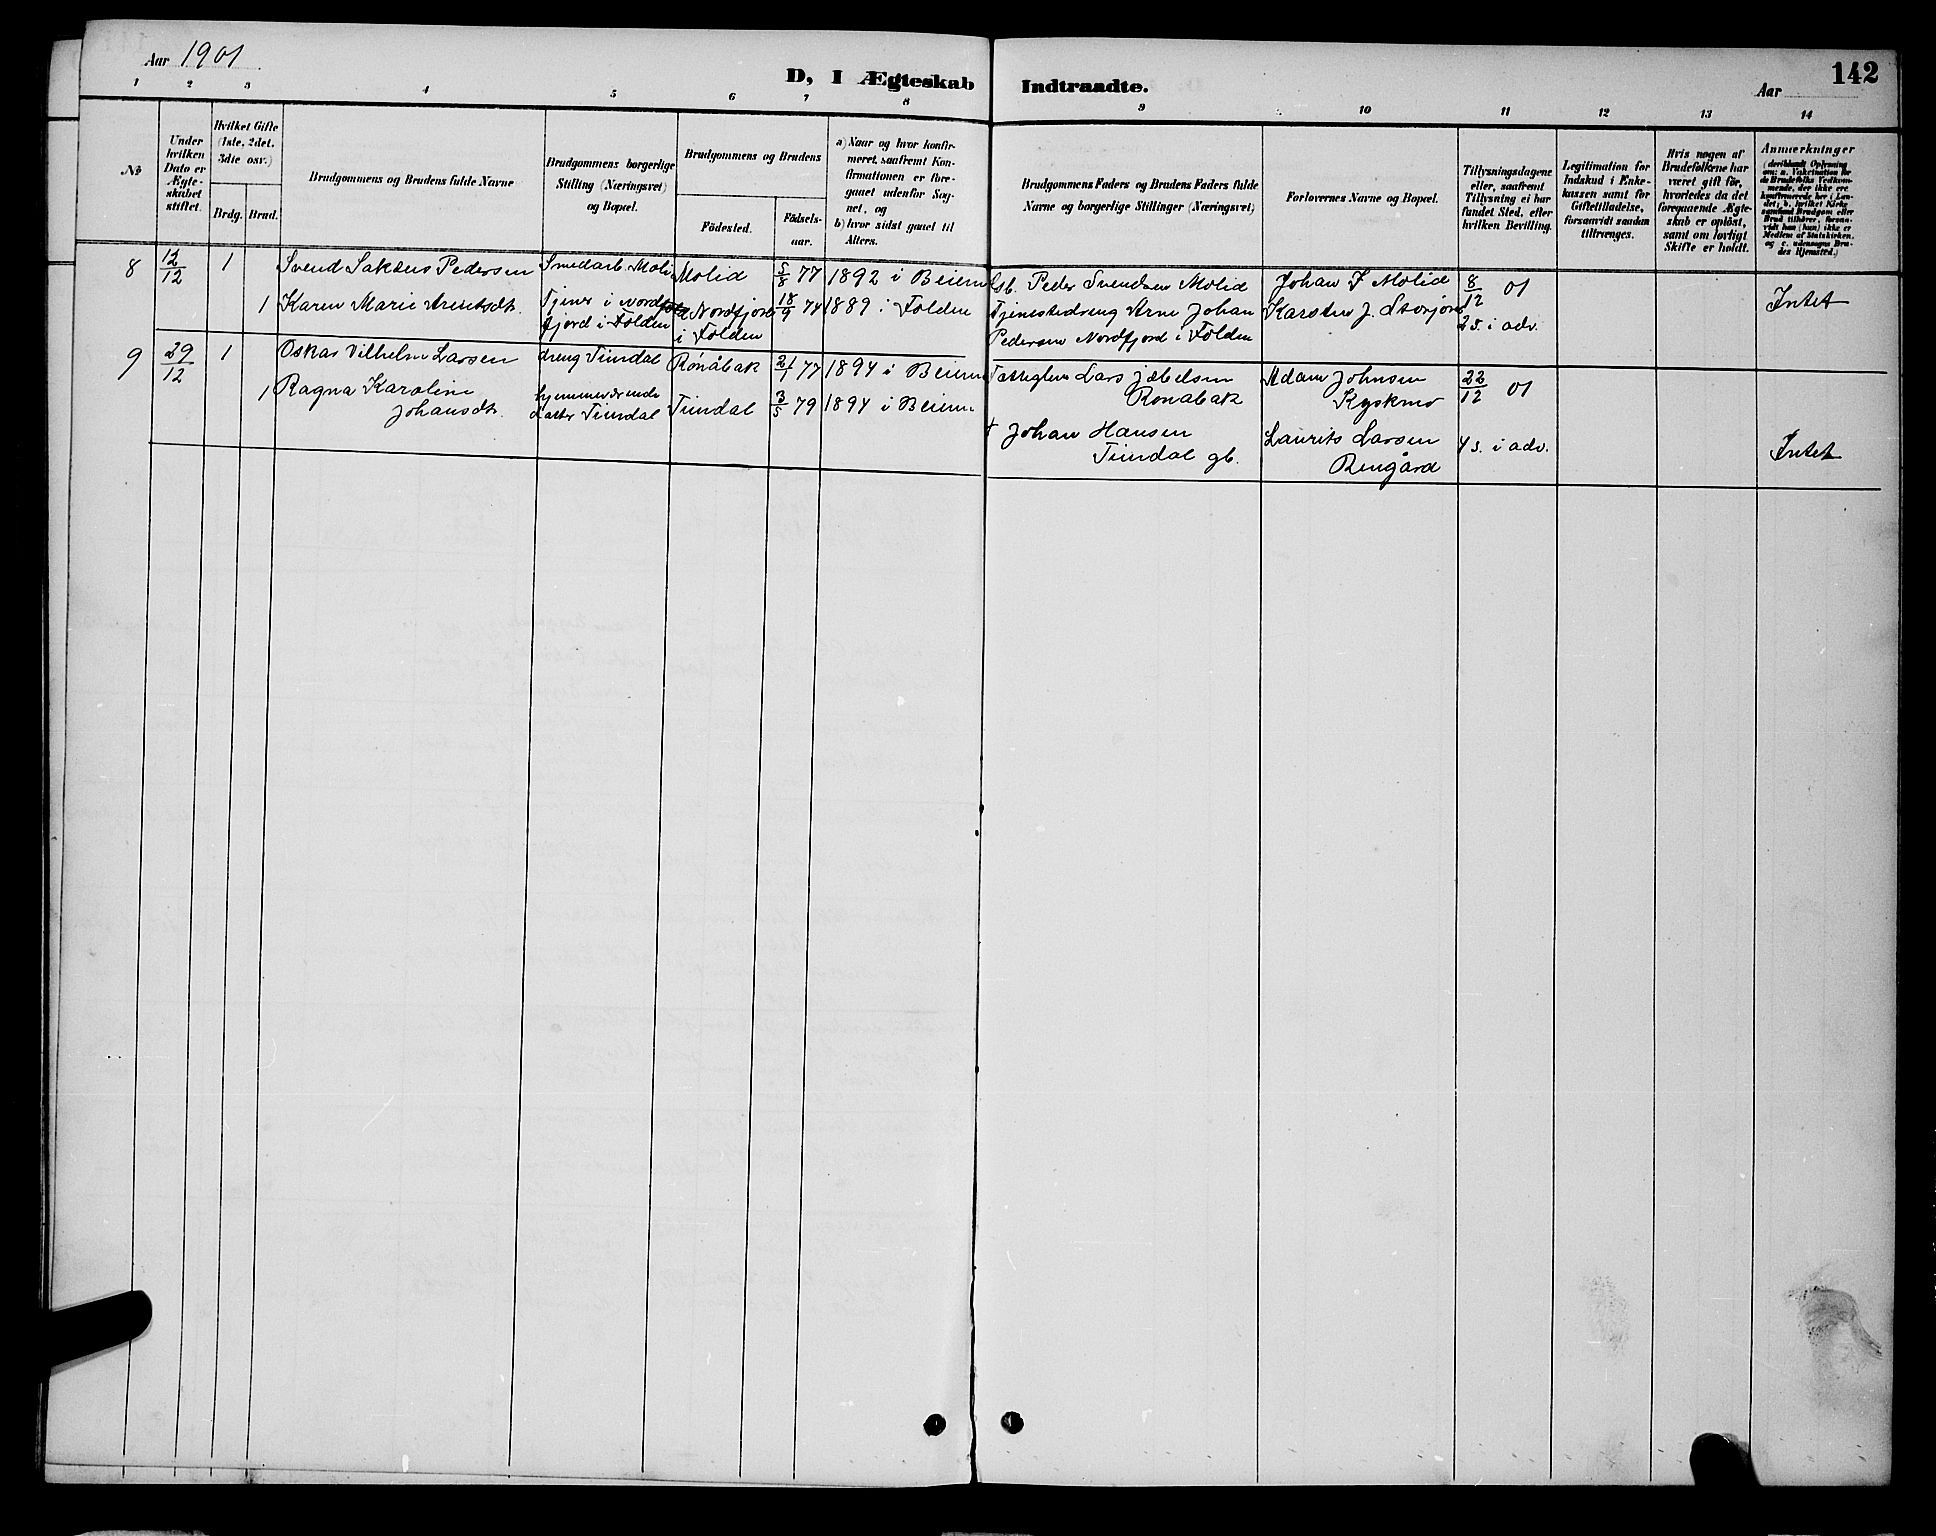 Aar 1901
D, I Ægteskab Indtraadte.
Aar
142
1 2 3 4 5 6 7 8 9 10 11 12 13 14
No
Under hvilken Dato er Ægteskabet stiftet.
Hvilket Gifte (1ste, 2det, 3die osv.)
Brdg. Brud.
Brudgommens og Brudens fulde Navne
Brudgommens borgerlige Stilling (Næringsvei) og Bopæl.
Brudgommens og Brudens
Födested.
Födselsaar.
a) Naar og hvor konfirmeret, saafremt Konfirmationen er foregaaet udenfor Sognet, og
b) hvor sidst gaaet til Alters.
Brudgommens Faders og Brudens Faders fulde Navne og borgerlige Stillinger (Næringsvei)
Forlovernes Navne og Bopæl.
Tillysningsdagene eller, saafremt Tillysning ei har fundet Sted, efter hvilken Bevilling.
Legitimation for Indskud i Enkekassen samt for Giftetilladelse, forsaavidt saadan tiltrænges.
Hvis nogen af Brudefolkene har været gift för, hvorledes da det foregaaende Ægteskab er oplöst, samt om lovligt Skifte er holdt.
Anmærkninger
(deriblandt Oplysning om: a. Vakcination for de Brudefolks Vedkommende, der ikke ere konfirmerede her i Landet; b. hvilket Kirkesamfund Brudgom eller Brud tilhörer, forsaavidt han (hun) ikke er Medlem af Statskirken, og c. udensogns Brudes Hjemsted.)
8 12/12 1 Svend Saktus Pedersen Smedarb. Moli Molid 5/8 77 1892 i Beiern Gb. Peder Svendsen Molid Johan Molid 8/12 01
1 Karen Marie Arentsdt. Tjener i Nordfjord i Folden Nordfjord i Folden 18/9 74 1889 i Folden Tjenestedreng Arne Johan Pedersen Nordfjord i Folden Karsten J. Storjord 2 s. i adv. Intet
9 29/12 1 Oskar Vilhelm Larsen dreng Tiindal Rönåbak 21/1 77 1894 i Beiern Lars Jæbelsen Rönåbak Adam Johnsen Kyskmo 22/12 01
1 Ragna Karoline Johansdt. hjemmeværende datter Tiindal Tiindal 3/5 79 1894 i Beiern † Johan Hansen Tiindal gb. Laurits Larsen Rengård 4 s. i adv. Intet